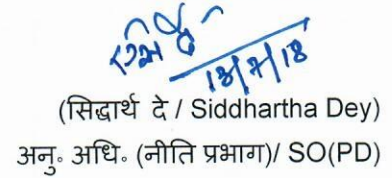 18/7/18
(सिद्धार्थ दे / Siddhartha Dey)
अनु॰ अधि॰ (नीति प्रभाग)/ SO(PD)